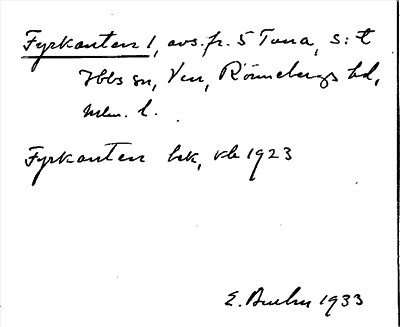 Fyrkanten 1, avs. fr. 5 Tuna, S:t
Ibbs sn, Ven, Rönnebergs hd,
Mlm. l.
Fyrkanten bek, kb 1923
E. 1933